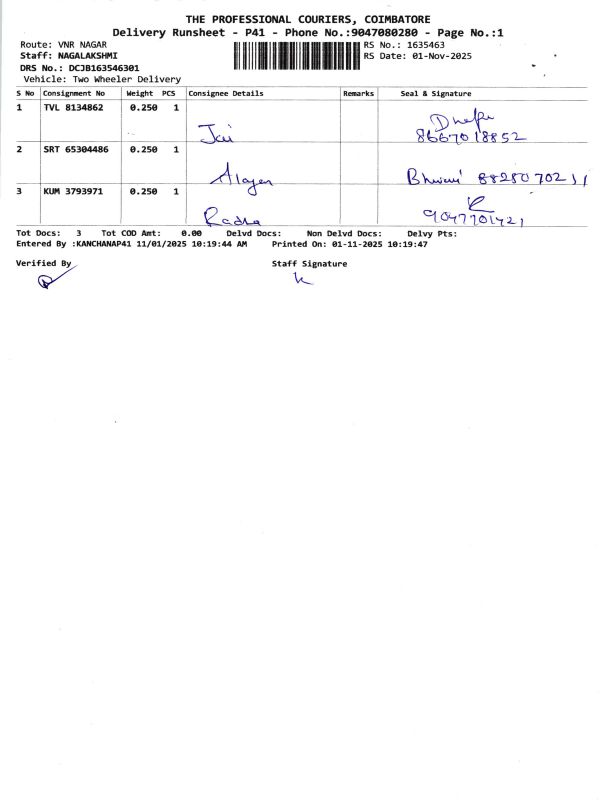 THE PROFESSIONAL COURIERS, COIMBATORE
Delivery Runsheet - P41 - Phone No.:9047080280 - Page No.:1
Route: VNR NAGAR RS No.: 1635463
Staff: NAGALAKSHMI RS Date: 01-Nov-2025
DRS No.: DCJB163546301
Vehicle: Two Wheeler Delivery
S No Consignment No Weight PCS Consignee Details Remarks Seal & Signature
1 TVL 8134862 0.250 1
Jai 8667018852
2 SRT 65304486 0.250 1
3 KUM 3793971 0.250 1
Radha 9047701421
Tot Docs: 3 Tot COD Amt: 0.00 Delvd Docs: Non Delvd Docs: Delvy Pts:
Entered By :KANCHANAP41 11/01/2025 10:19:44 AM Printed On: 01-11-2025 10:19:47
Verified By Staff Signature